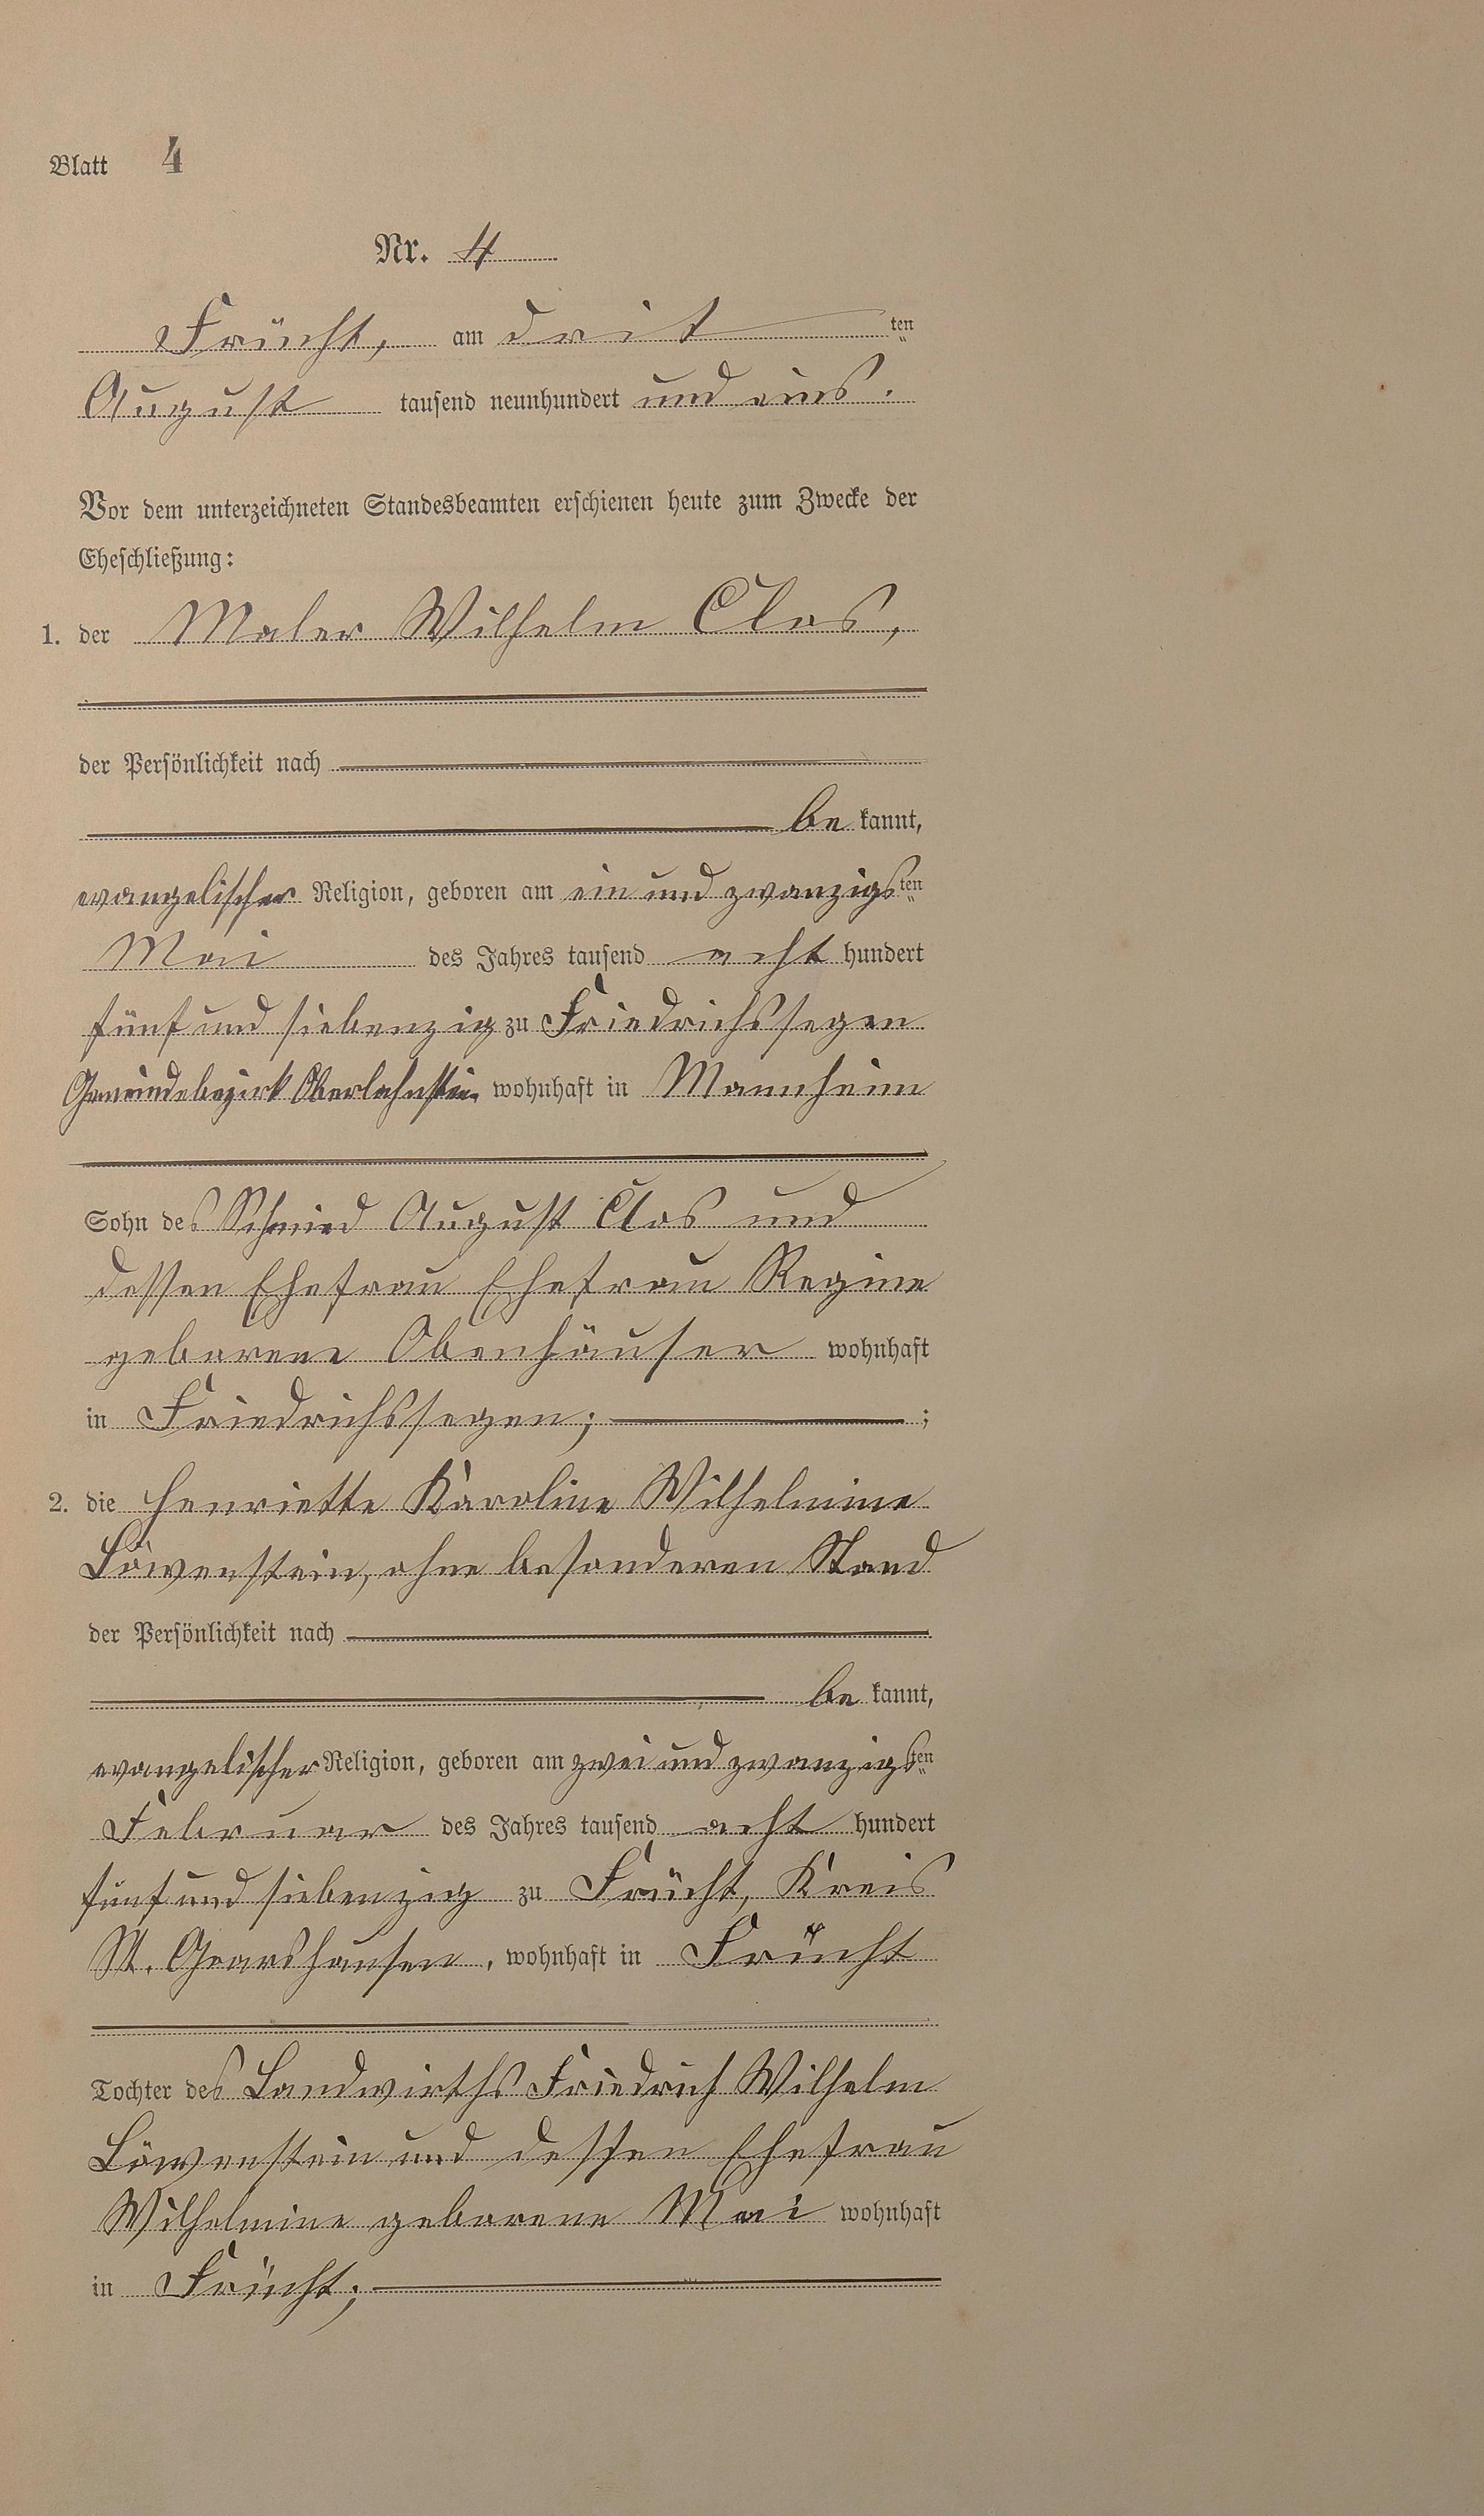 Blatt 4
Nr. 4
Frücht, am drit ten
August tausend neunhundert und eins.
Vor dem unterzeichneten Standesbeamten erschienen heute zum Zwecke der
Eheschließung:
1. der Maler Wilhelm Clos,
der Persönlichkeit nach
be kannt,
evangelischer Religion, geboren am ein und zwanzigsten
Mai des Jahres tausend acht hundert
fünf und siebenzig zu Friedrichssegen
Gemeindebezirk Oberlahnstein wohnhaft in Mannheim
Sohn des Schmied August Clos und
dessen Ehefrau Ehefrau Regine
geborene Obenhäuser wohnhaft
in Friedrichssegen; ;
2. die Henriette Karoline Wilhelmine
Löwenstein, ohne besonderen Stand
der Persönlichkeit nach
be kannt,
evangelischer Religion, geboren am zwei und zwanzigsten
Februar des Jahres tausend acht hundert
fünf und siebenzig zu Frücht, Kreis
St. Goarshausen, wohnhaft in Frücht
Tochter des Landwirths Friedrich Wilhelm
Löwenstein und dessen Ehefrau
Wilhelmine geborene Mai wohnhaft
in Frücht;